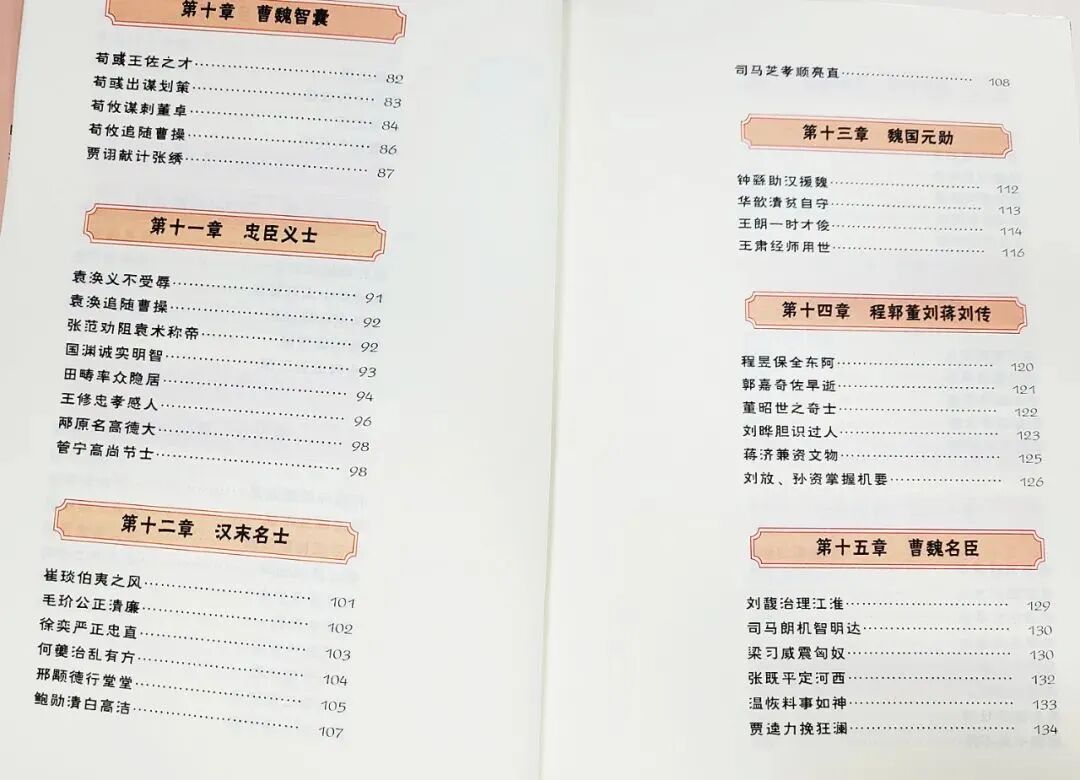 第十章 曹魏智囊
荀彧王佐之才 82
荀彧出谋划策 83
荀攸谋刺董卓 84
荀攸追随曹操 86
贾诩献计张绣 87
第十一章 忠臣义士
袁涣义不受辱 91
袁涣追随曹操 92
张范劝阻袁术称帝 92
国渊诚实明智 93
田畴率众隐居 94
王修忠孝感人 96
邴原名高德大 98
管宁高尚节士 98
第十二章 汉末名士
崔琰伯夷之风 101
毛玠公正清廉 102
徐奕严正忠直 103
何夔治乱有方 104
邢颙德行堂堂 105
鲍勋清白高洁 107
司马芝孝顺亮直 108
第十三章 魏国元勋
钟繇助汉援魏 112
华歆清贫自守 113
王朗一时才俊 114
王肃经师用世 116
第十四章 程郭董刘蒋刘传
程昱保全东阿 120
郭嘉奇佐早逝 121
董昭世之奇士 122
刘晔胆识过人 123
蒋济兼资文物 125
刘放、孙资掌握机要 126
第十五章 曹魏名臣
刘馥治理江淮 129
司马朗机智明达 130
梁习威震匈奴 130
张既平定河西 132
温恢料事如神 133
贾逵力挽狂澜 134